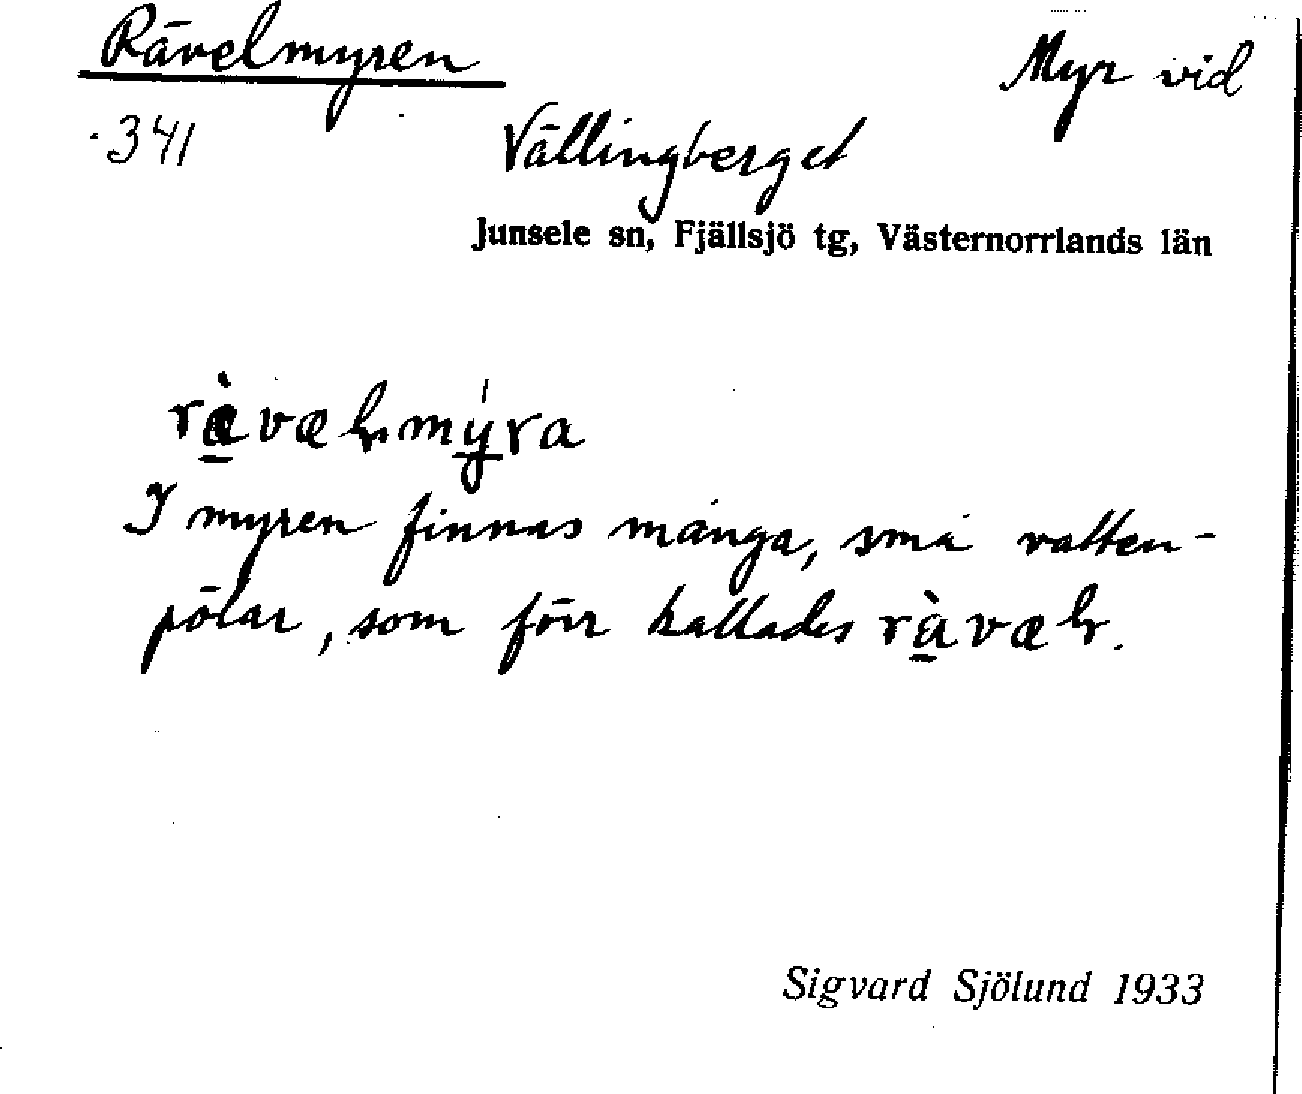 Rävelmyren
Myr vid
341
Vällingberget
Junsele sn, Fjällsjö tg, Västernorrlands län
I myren finnas många, små vatten-
pölar, som förr kallades
Sigvard Sjölund 1933